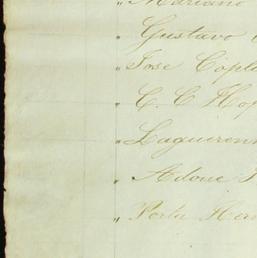 " Mariano
" Gustavo
" Jose Copla
" C. C. Hop
" Lagueronn
" Adoue
" Portu Her